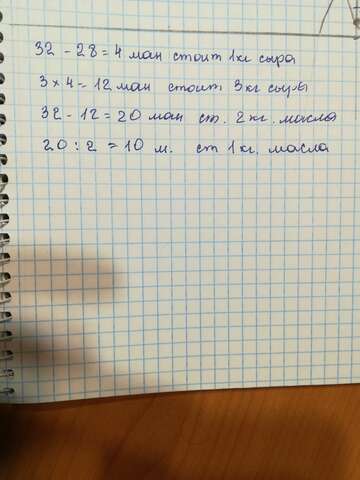 32 - 28 = 4 ман стоит 1 кг сыра
3 × 4 = 12 ман стоит 3 кг сыра
32 - 12 = 20 ман ст. 2 кг. масла
20 : 2 = 10 м. ст 1 кг. масла